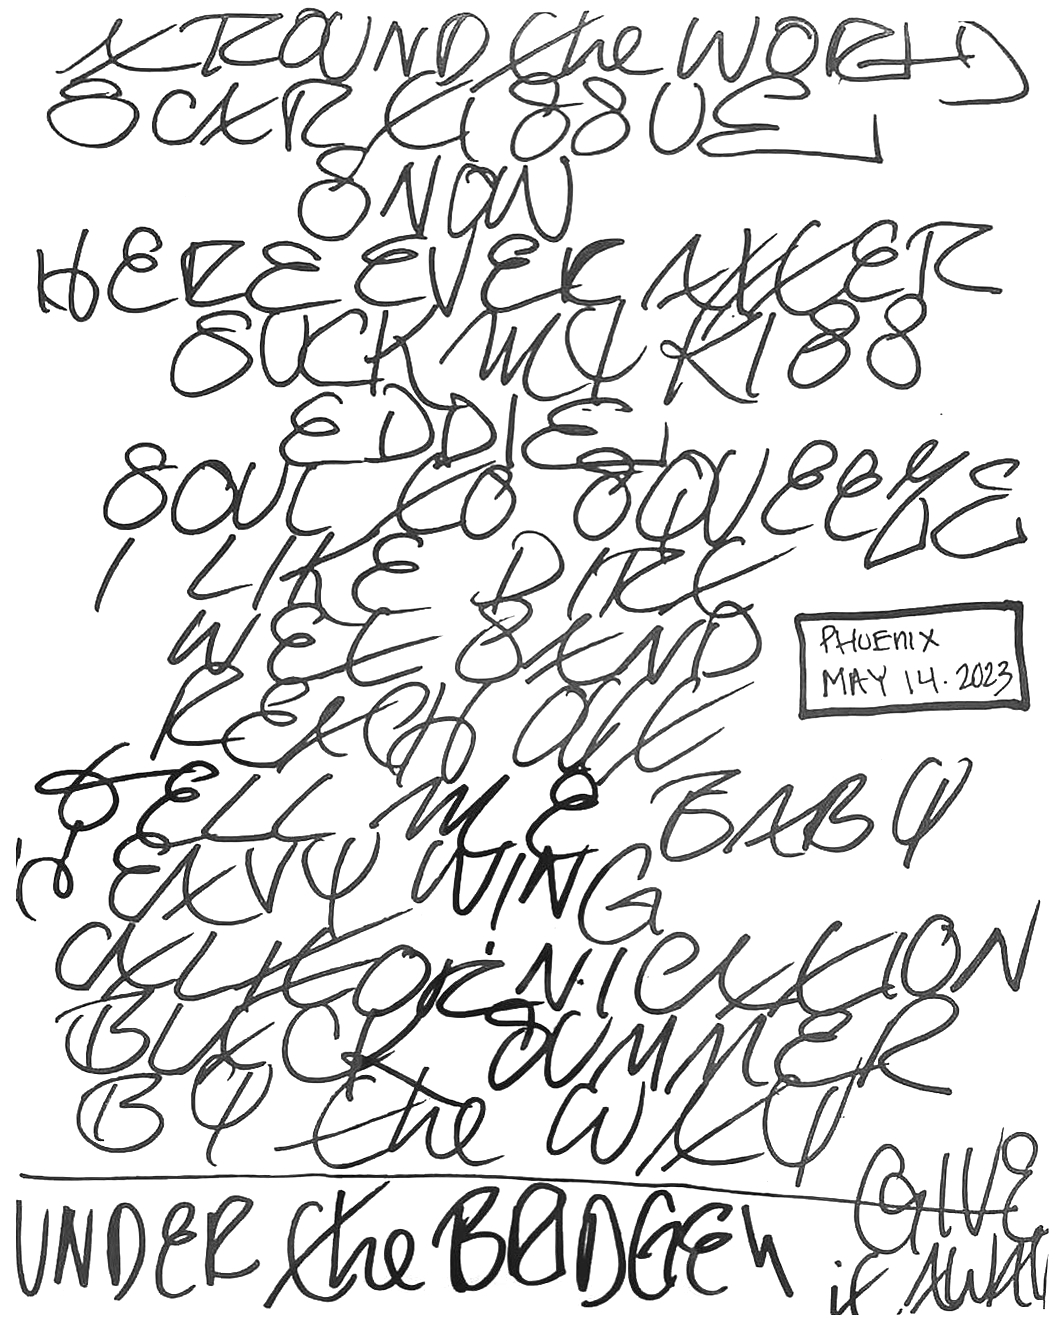 AROUND the WORLD
SCAR TISSUE
SNOW
HERE EVER AFTER
SUCK MY KISS
EDDIE
SOUL TO SQUEEZE
I LIKE DIRT
WET SAND
REACH OUT
TELL ME BABY
HEAVY WING
CALIFORNICATION
BLACK SUMMER
BY the WAY
UNDER the BRIDGE
GIVE
it AWAY
PHOENIX
MAY 14.2023